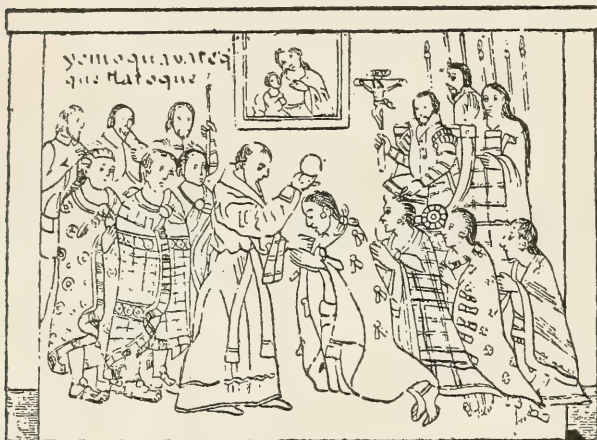 yemoquavateq
que tlatoque